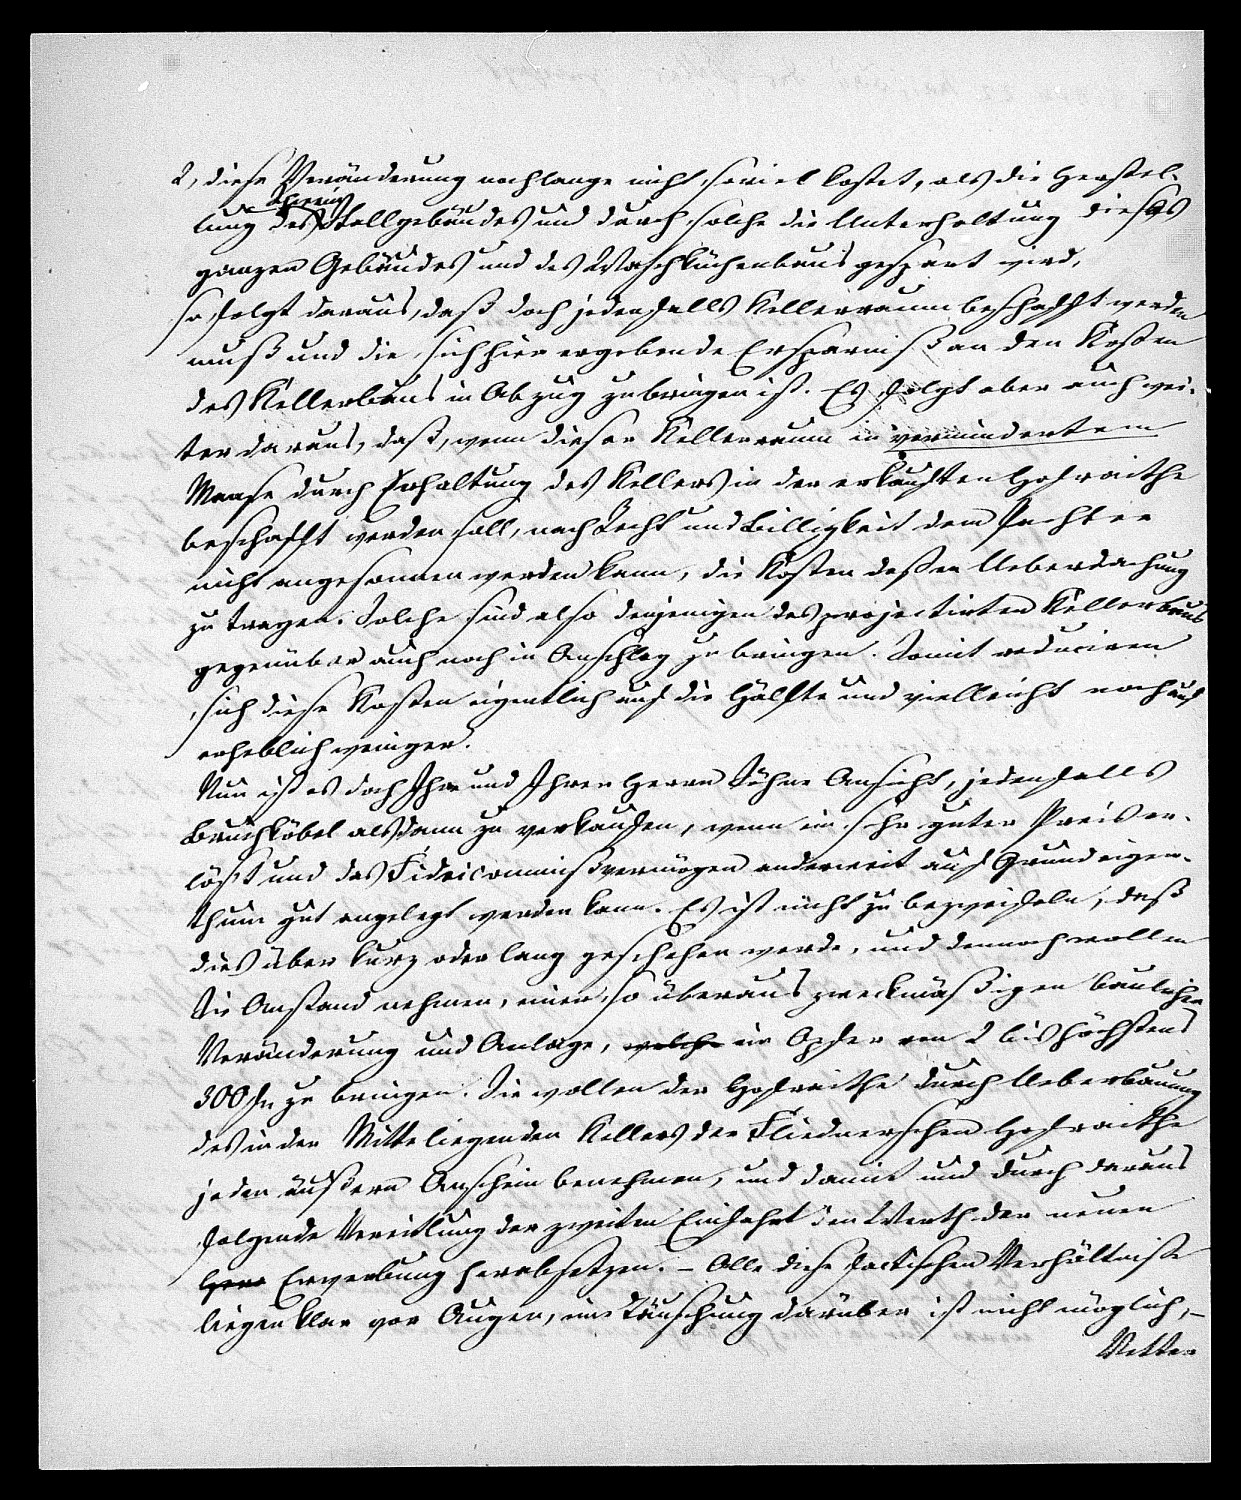 2, diese Veränderung noch lange nicht soviel kostet, als die Herstel-
lung des Stallgebäudes und durch solche die Unterhaltung dieses
ganzen Gebäudes und des Waschküchenbaus gespart wird,
so folgt daraus, daß doch jedenfalls Kellerraum beschafft werden
muß und die sich hier ergebende Ersparniß an den Kosten
des Kellerbaus in Abzug zu bringen ist. Es folgt aber auch wei-
ter daraus, daß, wenn dieser Kellerraum in vermindertem
Maase durch Erhaltung des Kellers in der erkauften Hofraithe
beschafft werden soll, nach Recht und Billigkeit dem Pachter
nicht angesonnen werden kann, die Kosten dessen Ueberdachung
zu tragen. Solche sind also denjenigen des projectirten Kellerbaus
gegenüber auch noch in Anschlag zu bringen. Somit reduciren
sich diese Kosten eigentlich auf die Hälfte und vielleicht noch auf
erheblich weniger.
Nun ist es doch Ihre und Ihrer Herrn Söhne Ansicht, jedenfalls
Bruchköbel alsdann zu verkaufen, wenn ein sehr guter Preis er-
löst und das Fideicommißvermögen anderweit auf Grundeigen-
thum gut angelegt werden kann. Es ist nicht zu bezweifeln, daß
dies über kurz oder lang geschehen werde, und dennoch wollen
Sie Anstand nehmen, einer so überaus zweckmäßigen baulichen
Veränderung und Anlage, welche ein Opfer von 2 bis höchstens
300 fl. zu bringen. Sie wollen der Hofraithe durch Ueberbauung
des in der Mitte liegenden Kellers der Fliednerschen Hofraithe
jeden äußern Anschein benehmen, und damit und durch daraus
folgende Vereitlung der zweiten Einfahrt den Werth der neuen
Erwerbung herabsetzen. – Alle diese factischen Verhältnisse
liegen klar vor Augen, eine Täuschung darüber ist nicht möglich, –
Vetter